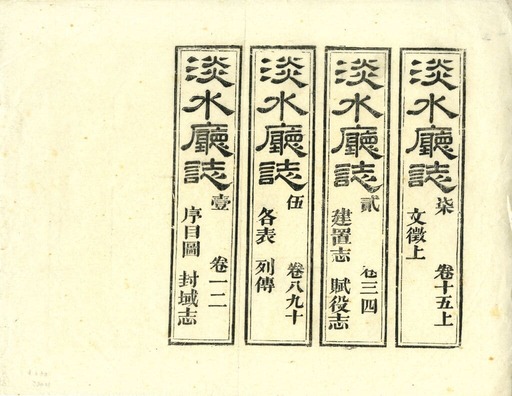 淡水廳誌 柒
文徵上 卷十五上
淡水廳誌 貳
建置志 賦役志 卷三四
淡水廳誌 伍
各表 列傳 卷八九十
淡水廳誌 壹
序目圖 封域志 卷一二